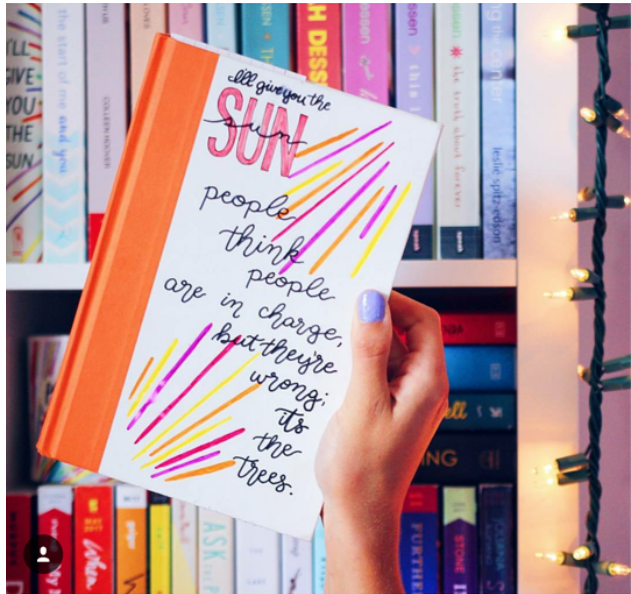 I'll give you the
SUN
sun
people
think
people
are in charge,
but they're
wrong;
its
the
trees.
I'LL
GIVE
YOU
THE
SUN
the start of me and you
COLLEEN HOOVER
the truth about forever
leslie spitz-edson
MAY
When
ASK
FURTHE
STONE